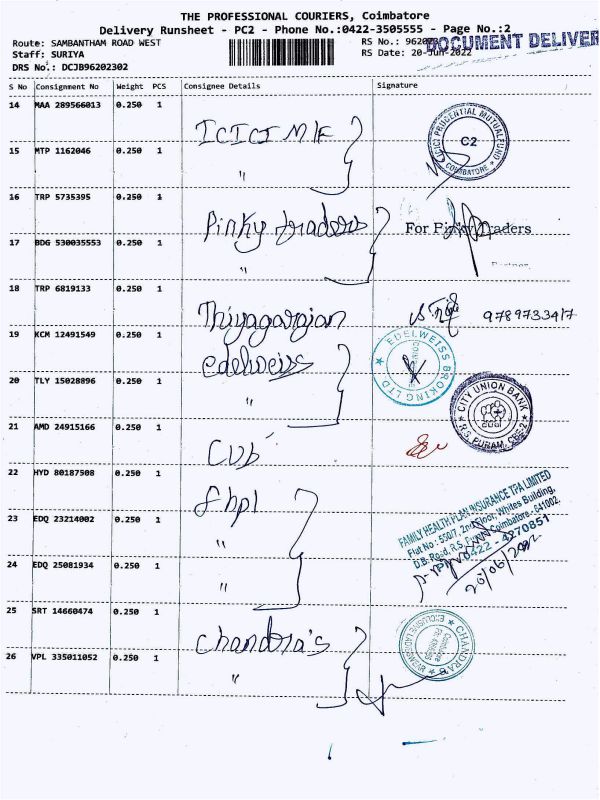 THE PROFESSIONAL COURIERS, Coimbatore
Delivery Runsheet - PC2 - Phone No.:0422-3505555 - Page No.:2
Route: SAMBANTHAM ROAD WEST
Staff: SURIYA
DRS No.: DCJB96202302
RS Date: 20-Jun-2022
DOCUMENT DELIVER
S No Consignment No Weight PCS Consignee Details Signature
14 MAA 289566013 0.250 1 ICICI M/F
15 MTP 1162046 0.250 1 "
ICICI PRUDENTIAL MUTUAL FUND
C2
COIMBATORE
16 TRP 5735395 0.250 1 Pinky traders
For Pinky Traders
17 BDG 530035553 0.250 1 "
Partner
18 TRP 6819133 0.250 1 Thiyagarajan
9789733417
19 KCM 12491549 0.250 1 edelweiss
20 TLY 15028896 0.250 1 "
EDELWEISS BROKING LTD
21 AMD 24915166 0.250 1 CUb
CITY UNION BANK
CUB
R.S. PURAM, CBE-2
22 HYD 80187508 0.250 1 fhpl
23 EDQ 23214002 0.250 1 "
24 EDQ 25081934 0.250 1 "
FAMILY HEALTH PLAN INSURANCE TPA LIMITED
Flat No : 550/7, 2nd Floor, Whites Building,
D.B. Road, R.S. Coimbatore - 641002.
0422 - 4270851
20/06/2022
25 SRT 14660474 0.250 1 Chandra's
26 VPL 335011052 0.250 1 "
CHANDRA'S
EXCLUSIVE LADIES